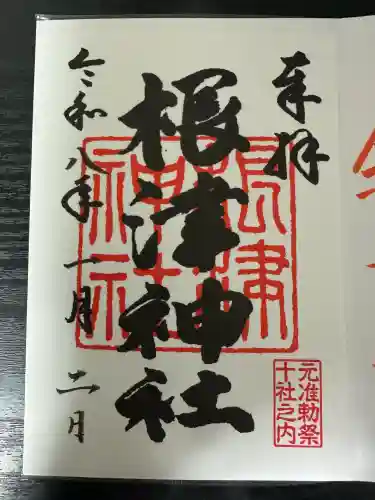 奉拝
根津神社
根津神社
元准勅祭
十社之内
令和八年一月二日